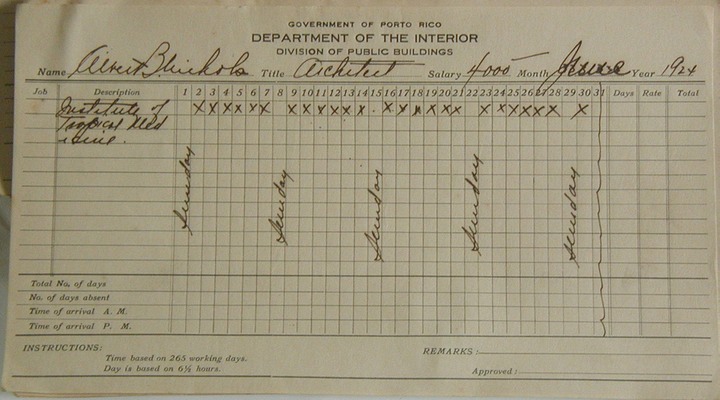 GOVERNMENT OF PORTO RICO
DEPARTMENT OF THE INTERIOR
DIVISION OF PUBLIC BUILDINGS
Name Albert B. Nichols Title Architect Salary 4000 Month June Year 1924
Job Description 1 2 3 4 5 6 7 8 9 10 11 12 13 14 15 16 17 18 19 20 21 22 23 24 25 26 27 28 29 30 31 Days Rate Total
Institute of X X X X X X X X X X X X X X X X X X X X X X X X X
Tropical Med
icine.
Sunday Sunday Sunday Sunday Sunday
Total No. of days
No. of days absent
Time of arrival A. M.
Time of arrival P. M.
INSTRUCTIONS: REMARKS:
Time based on 265 working days.
Day is based on 6½ hours.
Approved: